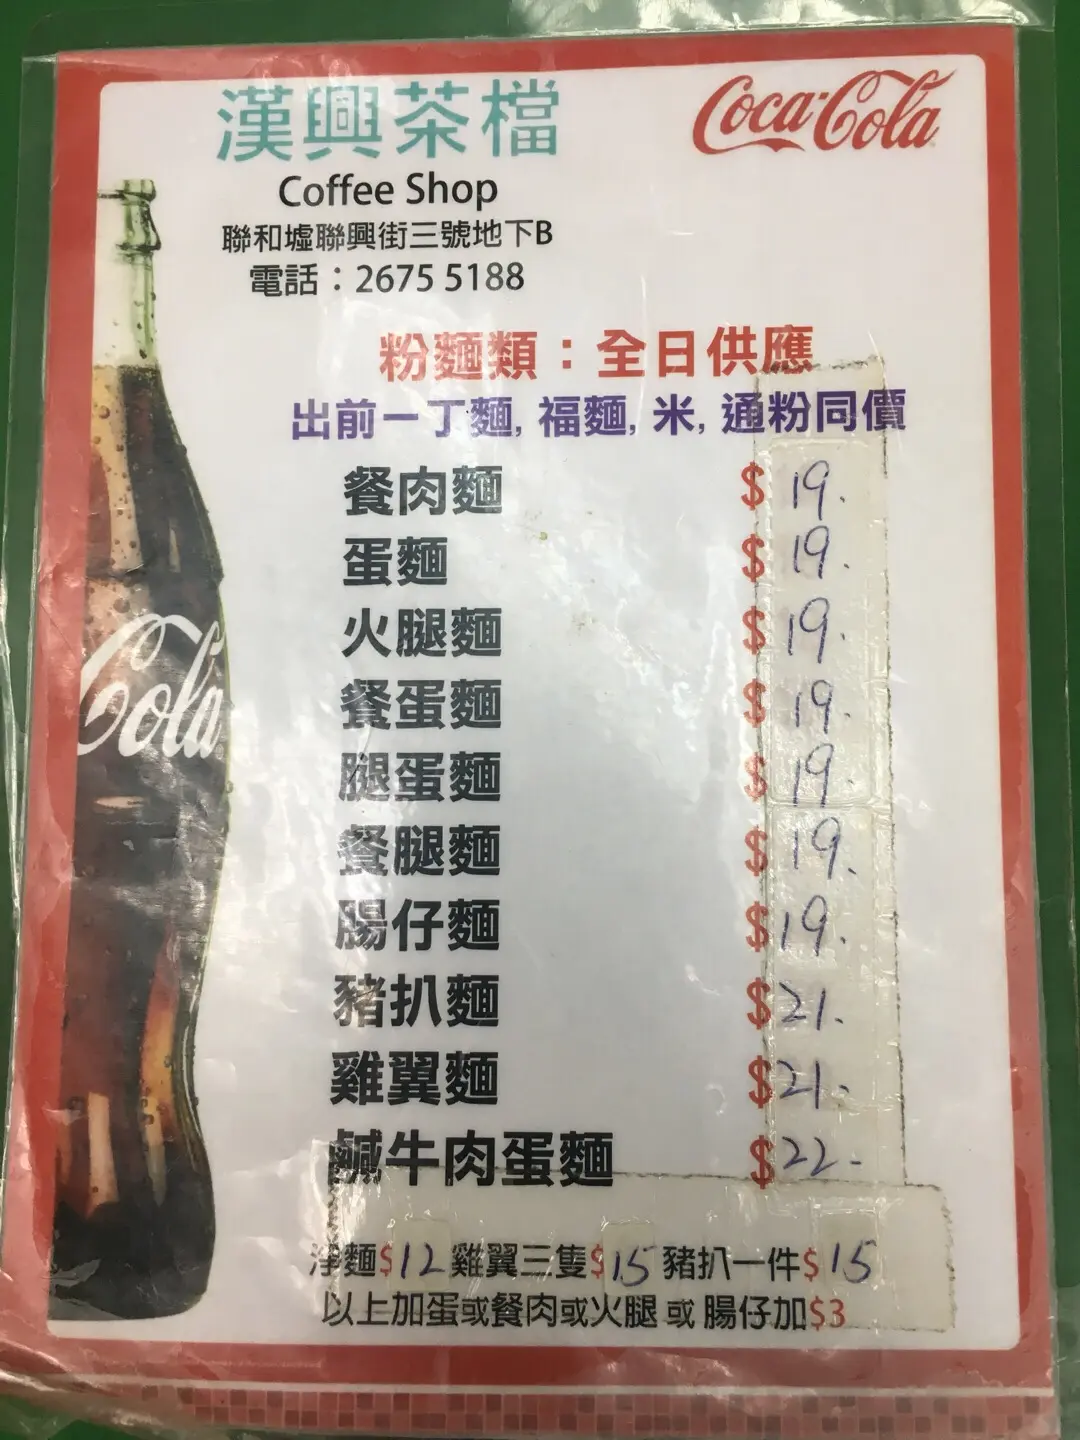 漢興茶檔
Coca-Cola
Coffee Shop
聯和墟聯興街三號地下B
電話：2675 5188
粉麵類：全日供應
出前一丁麵, 福麵, 米, 通粉同價
餐肉麵 $ 19.
蛋麵 $ 19.
火腿麵 $ 19.
餐蛋麵 $ 19.
腿蛋麵 $ 19.
餐腿麵 $ 19.
腸仔麵 $ 19.
豬扒麵 $ 21.
雞翼麵 $ 21-
鹹牛肉蛋麵 $ 22-
淨麵$12 雞翼三隻$15 豬扒一件$15
以上加蛋或餐肉或火腿 或 腸仔加$3
Cola